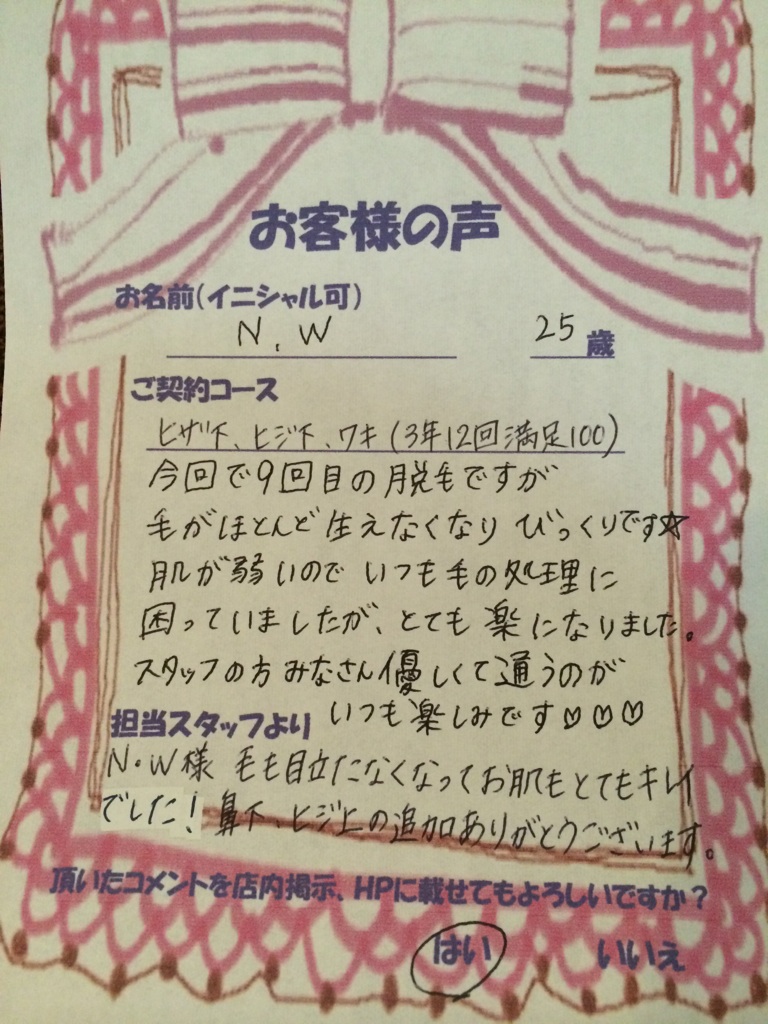 お客様の声
お名前(イニシャル可)
N.W 25歳
ご契約コース
ヒザ下、ヒジ下、ワキ(3年12回満足100)
今回で9回目の脱毛ですが
毛がほとんど生えなくなりびっくりです☆
肌が弱いのでいつも毛の処理に
困っていましたが、とても楽になりました。
スタッフの方みなさん優しくて通うのが
いつも楽しみです♡♡♡
担当スタッフより
N・W様 毛も目立たなくなってお肌もとてもキレイ
でした!鼻下、ヒジ上の追加ありがとうございます。
頂いたコメントを店内掲示、HPに載せてもよろしいですか?
はい いいえ